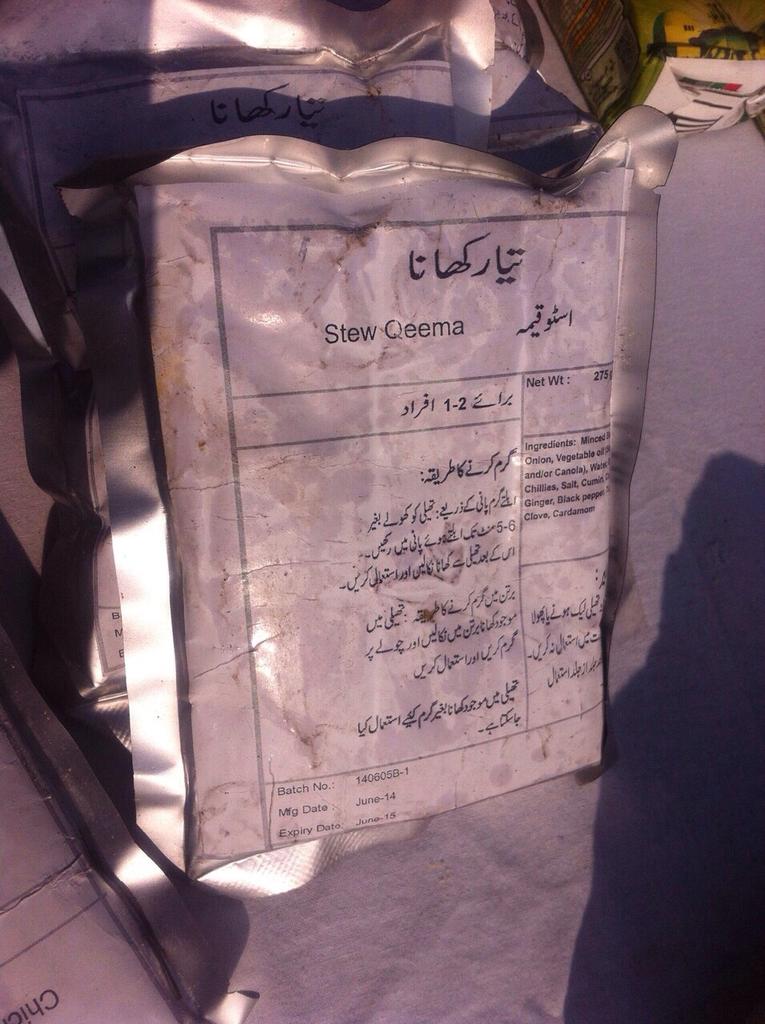 تیار کھانا
تیار کھانا
Stew Qeema
اسٹو قیمہ
برائے 2-1 افراد
Net Wt : 275
گرم کرنے کا طریقہ:
ابلتے گرم پانی کے ذریعے: تھیلی کو کھولے بغیر
5-6 منٹ تک ابلتے ہوئے پانی میں رکھیں۔
اس کے بعد تھیلی سے کھانا نکالیں اور استعمال کریں۔
برتن میں گرم کرنے کا طریقہ: تھیلی میں
موجود کھانا برتن میں نکالیں اور چولہے پر
گرم کریں اور استعمال کریں
تھیلی میں موجود کھانا بغیر گرم کیئے استعمال کیا
جا سکتا ہے۔
Ingredients: Minced
Onion, Vegetable oil
and/or Canola), Water
Chillies, Salt, Cumin,
Ginger, Black pepper,
Clove, Cardamom
تھیلی لیک ہونے یا پھولا
میں استعمال نہ کریں۔
جلد از جلد استعمال
Batch No.: 140605B-1
Mfg Date : June-14
Expiry Date: June-15